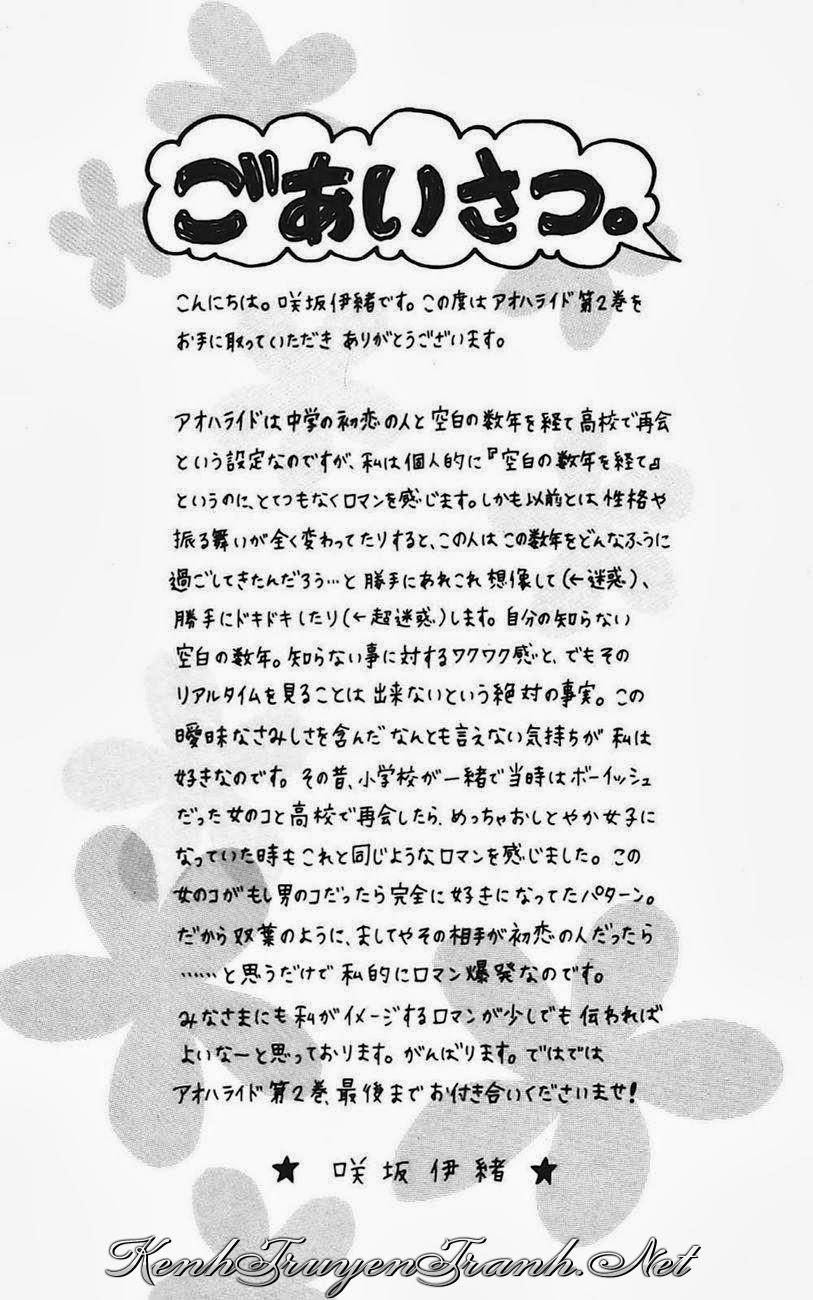 ごあいさつ。
こんにちは。咲坂伊緒です。この度はアオハライド第2巻を
お手に取っていただき ありがとうございます。
アオハライドは中学の初恋の人と空白の数年を経て高校で再会
という設定なのですが、私は個人的に『空白の数年を経て』
というのに、とてつもなくロマンを感じます。しかも以前とは、性格や
振る舞いが全く変わってたりすると、この人はこの数年をどんなふうに
過ごしてきたんだろう…と勝手にあれこれ想像して(←迷惑)、
勝手にドキドキしたり(←超迷惑)します。自分の知らない
空白の数年。知らない事に対するワクワク感と、でもその
リアルタイムを見ることは出来ないという絶対の事実。この
曖昧なさみしさを含んだなんとも言えない気持ちが私は
好きなのです。その昔、小学校が一緒で当時はボーイッシュ
だった女のコと高校で再会したら、めっちゃおしとやか女子に
なっていた時もこれと同じようなロマンを感じました。この
女のコがもし男のコだったら完全に好きになってたパターン。
だから双葉のように、ましてやその相手が初恋の人だったら
……と思うだけで私的にロマン爆発なのです。
みなさまにも私がイメージするロマンが少しでも伝われば
よいなーと思っております。がんばります。ではでは
アオハライド第2巻、最後までお付き合いくださいませ!
★ 咲坂伊緒 ★
KenhTruyenTranh.Net